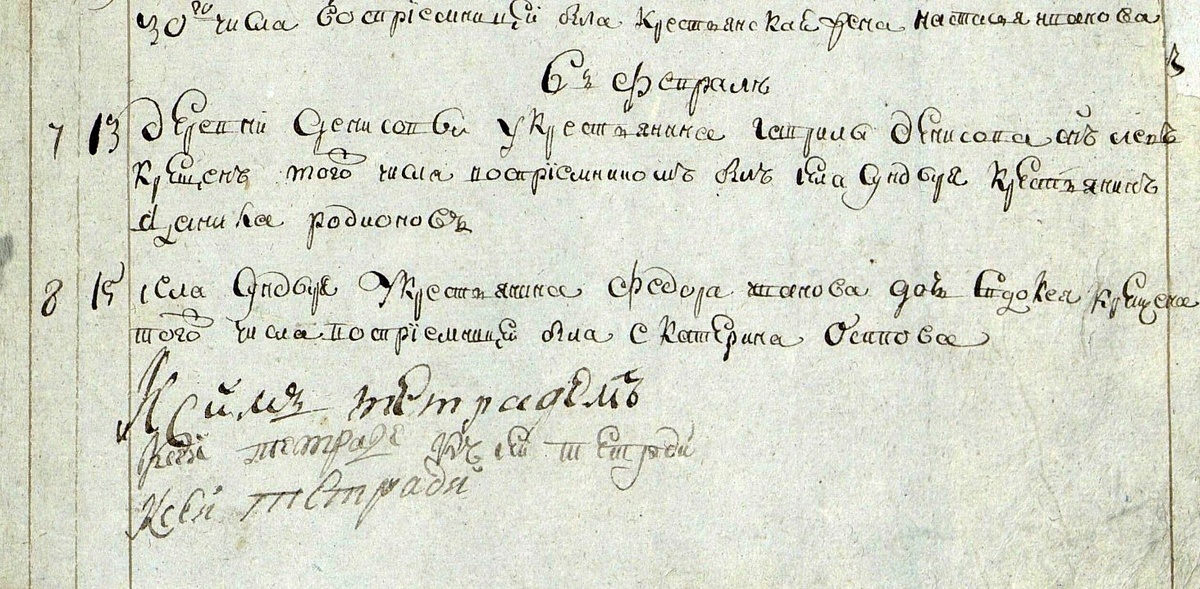 30го числа восприемницей была крестьянская жена настася иванова
въ Февралѣ
3
7 13 деревни Денисовъки у крестьянина гаврилы денисова сынъ левъ
крещенъ того числа восприемникомъ былъ села Сундвуя крестьянинъ
данила родионовъ
8 15 села Сундвуя У крестьянина Федора иванова дочь Евдокея крещена
того числа восприемницей была Екатерина Осипова
К симъ тетрадемъ
тетраде къ сей тетради
К сей тетради